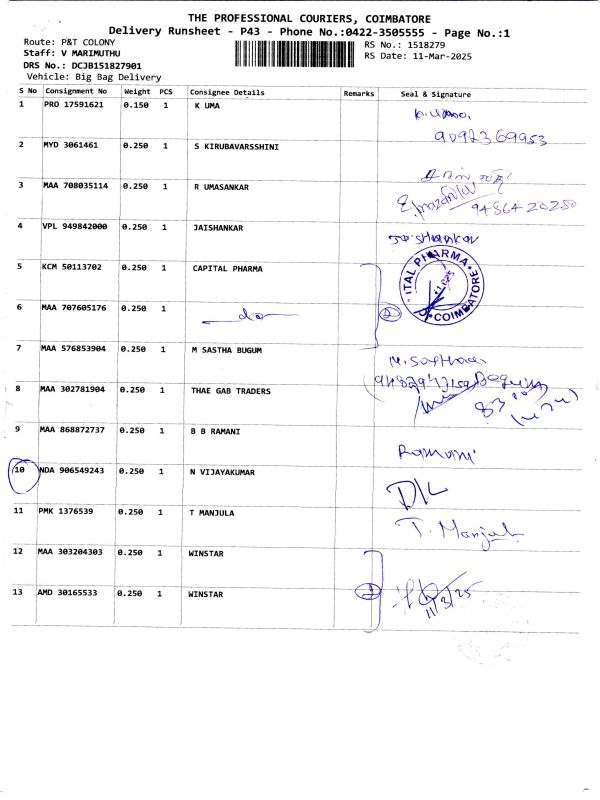 THE PROFESSIONAL COURIERS, COIMBATORE
Delivery Runsheet - P43 - Phone No.:0422-3505555 - Page No.:1
Route: P&T COLONY
RS No.: 1518279
Staff: V MARIMUTHU
RS Date: 11-Mar-2025
DRS No.: DCJB151827901
Vehicle: Big Bag Delivery
S No Consignment No Weight PCS Consignee Details Remarks Seal & Signature
1 PRO 17591621 0.150 1 K UMA
9092369953
2 MYD 3061461 0.250 1 S KIRUBAVARSSHINI
3 MAA 708035114 0.250 1 R UMASANKAR
9486420280
4 VPL 949842000 0.250 1 JAISHANKAR
Jaishankar
5 KCM 50113702 0.250 1 CAPITAL PHARMA
ITAL PHARMA
COIMBATORE
6 MAA 707605176 0.250 1 do 2
7 MAA 576853904 0.250 1 M SASTHA BUGUM
8 MAA 302781904 0.250 1 THAE GAB TRADERS
9 MAA 868872737 0.250 1 B B RAMANI
Ramani
10 NDA 906549243 0.250 1 N VIJAYAKUMAR
D/L
11 PMK 1376539 0.250 1 T MANJULA
T. Manjula
12 MAA 303204303 0.250 1 WINSTAR
13 AMD 30165533 0.250 1 WINSTAR
11/3/25